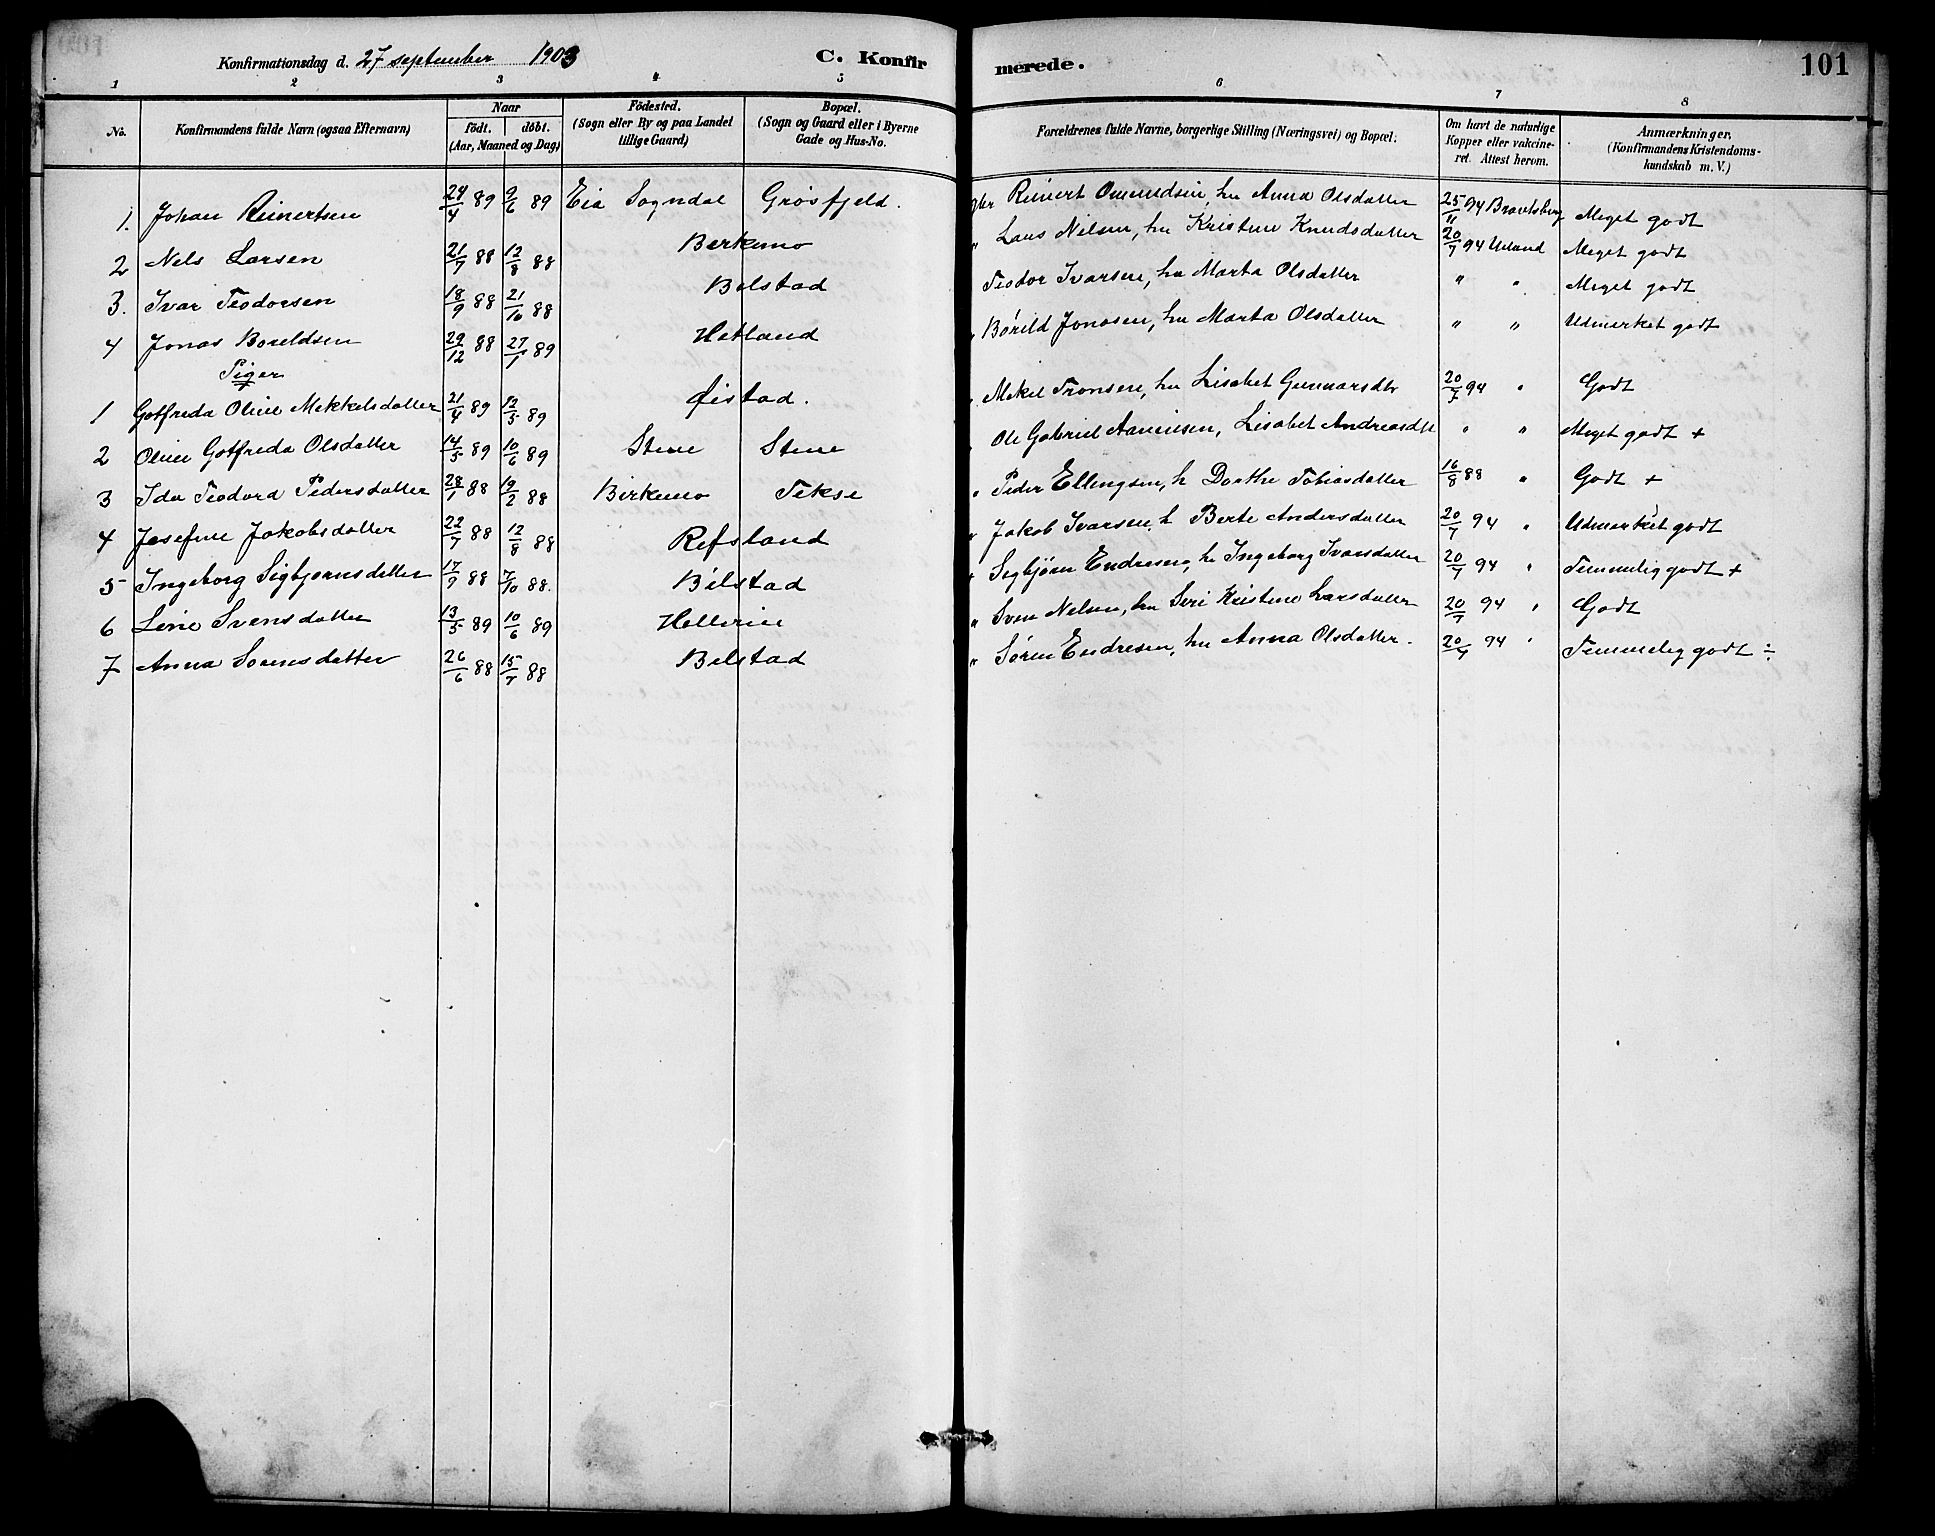 Konfirmationsdag d. 27 september 1903 C. Konfirmerede. 101
1 2 3 4 5 6 7 8
No. Konfirmandens fulde Navn (ogsaa Efternavn) Naar födt. döbt. (Aar, Maaned og Dag) Födested. (Sogn eller By og paa Landet tillige Gaard) Bopæl. (Sogn og Gaard eller i Byerne Gade og Hus-No. Forældrenes fulde Navne, borgerlige Stilling (Næringsvei) og Bopæl. Om havt de naturlige Kopper eller vakcineret. Attest herom. Anmærkninger. (Konfirmandens Kristendomskundskab m. V.)
1. Johan Reinertsen 24/4 89 9/6 89 Eia Sogndal Grösfjeld. gbr Reinert Ommundsen, hu Anna Olsdatter 25/11 94 Meget godt
2 Nels Larsen 21/7 88 12/8 88 Birkemo " Lars Nilsen, hu Kristine Knudsdatter 20/7 94 Ueland Meget godt
3. Ivar Teodorsen 18/9 88 21/10 88 Bilstad Teodor Ivarsen, hu Marta Olsdatter " " Meget godt
4 Jonas Boreldsen 29/12 88 27/1 89 Hetland " Børild Jonasen, hu Marta Olsdatter " " Udmerket godt
Piger
1 Gotfreda Oline Mekkelsdatter 21/4 89 12/5 89 Øistad. " Mekel Tronsen, hu Lisabet Gunnarsdtr 20/7 94 " Godt
2 Oline Gotfreda Olsdatter 14/5 89 10/6 89 Stene Stene " Ole Gabriel Aanensen, Lisabet Andreasdtr " " Meget godt +
3 Ida Teodora Pedersdatter 28/1 88 19/2 88 Birkemo Tekse " Peder Ellingsen, h Dorthe Tobiasdatter 16/8 88 " Godt +
4 Josefine Jakobsdatter 22/7 88 12/8 88 Refsland " Jakob Ivarsen, h Berte Andersdatter 20/7 94 " Udmerket godt
5 Ingeborg Sigbjørnsdatter 17/9 88 7/10 88. Bilstad " Sigbjørn Endresen, hu Ingeborg Ivarsdatter 20/7 94 " Temmelig godt +
6 Line Svensdatter 13/5 89 10/6 89 Helleren " Sven Nelsen, hu Seri Kristine Larsdatter 20/7 94 " Godt
7 Anna Sorensdatter 26/6 88 15/7 88 Bilstad " Søren Endresen, hu Anna Olsdatter. 20/7 94 " Temmelig godt ÷